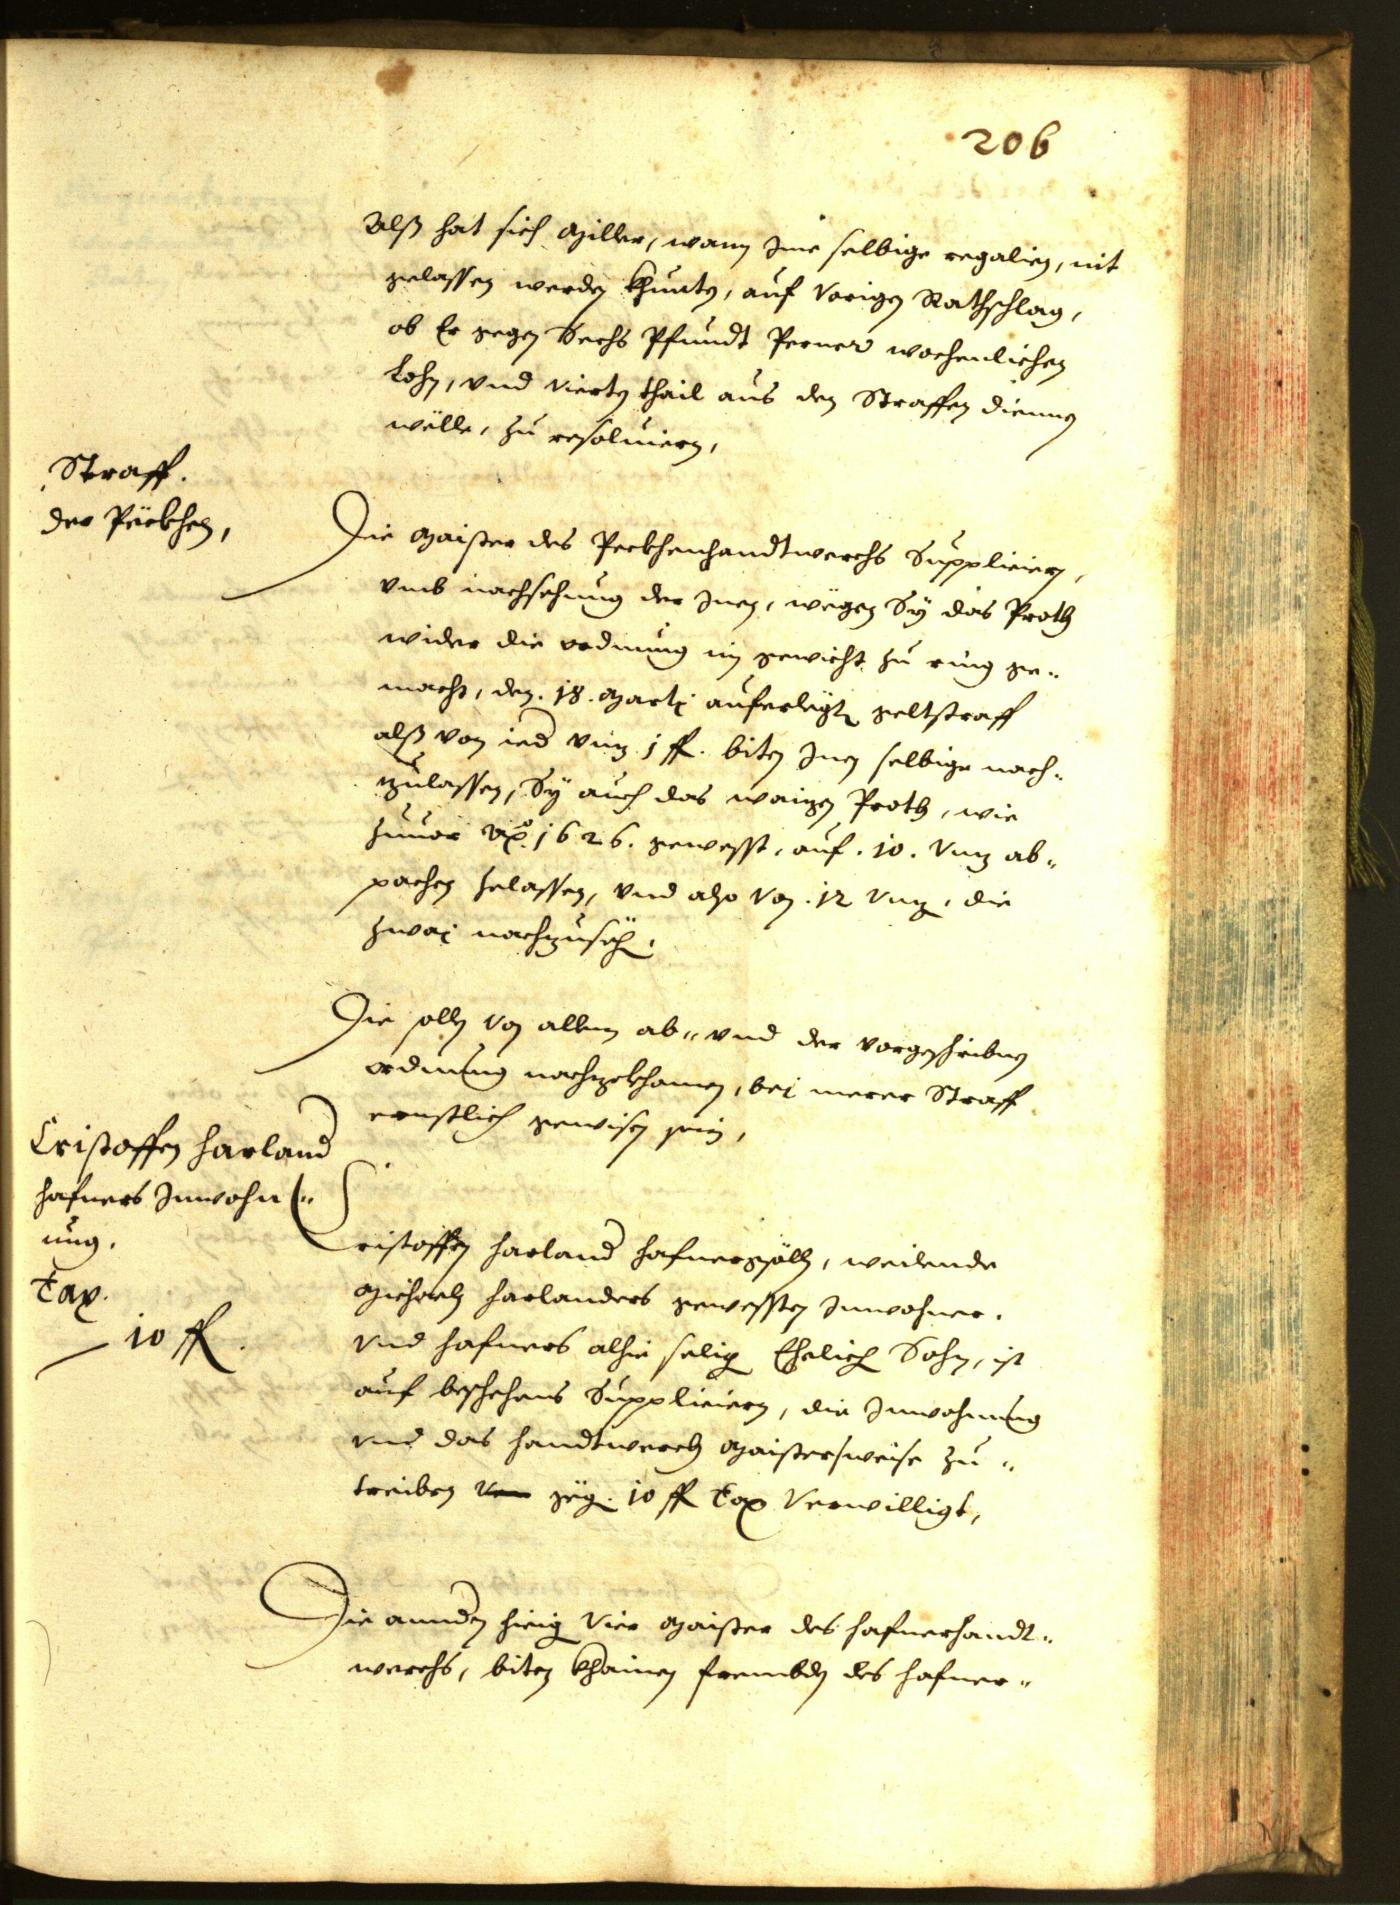 206
Alß hat sich Miller, wann Ime selbige regalien, nit
gelassen werden khundte, auf vorigen Rathschlag,
ob Er gegen Sechs Pfundt Perner wochenlichen
Lohn, vnd vierten thail aus den Straffen diennen
wëlle, zu resoluiern,
Straff.
der Pëckhen,
Die Maister des Peckhenhandtwerchs Supplicieren,
vmb nachsehung der Inen, wëgen Sÿ das Proth
wider die ordnung im gewicht zu ring ge„
macht, den 18. Martj auferlegte geltstraff
alß von ied vnz 1 fl. biten Inen selbige nach„
zulassen, Sÿ auch das waizen Proth, wie
zuuor Aõ. 1626. gewesst, auf. 10. Vnz ab„
pachen zelassen, vnd also von 12 Vnz, die
zwaj nachzusëh.
Die solln von allem ab„ vnd der vorgeschribnen
ordnung nachzekhomen, bej merer Straff
ernstlich gewisen sein,
Cristoffen Harland
hafners Inwohn„
ung.
Tax.
10 fl.
Cristoffen Harland hafnergsölln, weilende
Michaeln Harlanders gewessten Inwohner.
vnd hafners alhie selig Ehelich Sohn, ist
auf beschehens Supplicieren, die Inwohnung
vnd das handtwerch Maistersweise zu„
treiben geg. 10 fl Tax Verwilligt,
Die anndern hieig Vier Maister des hafnerhandt„
werchs, biten khainen frembden des hafner„